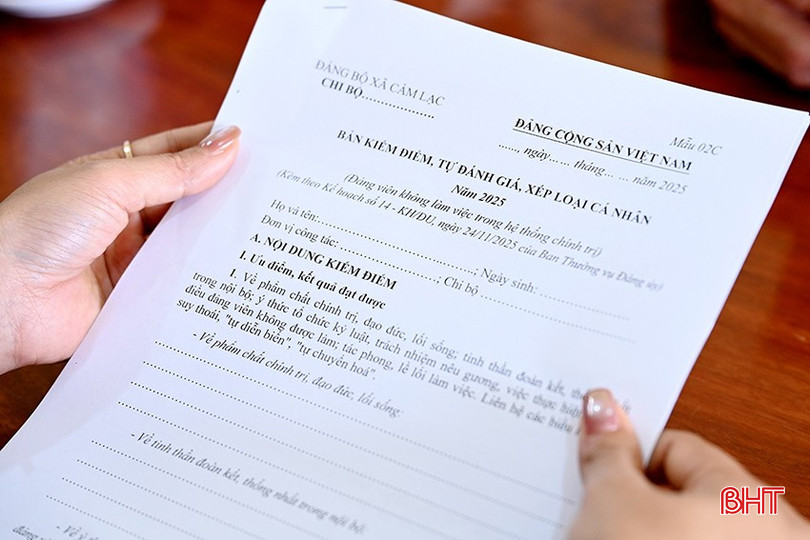 ĐẢNG BỘ XÃ CẨM LẠC
CHI BỘ..................
Mẫu 02C
ĐẢNG CỘNG SẢN VIỆT NAM
......, ngày...... tháng... ... năm 2025
BẢN KIỂM ĐIỂM, TỰ ĐÁNH GIÁ, XẾP LOẠI CÁ NHÂN
Năm 2025
(Đảng viên không làm việc trong hệ thống chính trị)
(Kèm theo Kế hoạch số 14 - KH/ĐU, ngày 24/11/2025 của Ban Thường vụ Đảng ủy)
Họ và tên:.............................; Ngày sinh: ......................
Đơn vị công tác: ........................., Chi bộ ..............................
A. NỘI DUNG KIỂM ĐIỂM
I. Ưu điểm, kết quả đạt được
1. Về phẩm chất chính trị, đạo đức, lối sống; tinh thần đoàn kết,
trong nội bộ; ý thức tổ chức kỷ luật, trách nhiệm nêu gương, việc thực hiện
điều đảng viên không được làm; tác phong, lề lối làm việc. Liên hệ các biểu
suy thoái, "tự diễn biến", "tự chuyển hoá".
- Về phẩm chất chính trị, đạo đức, lối sống:
- Về tinh thần đoàn kết, thống nhất trong nội bộ:
- Về ý
BHT